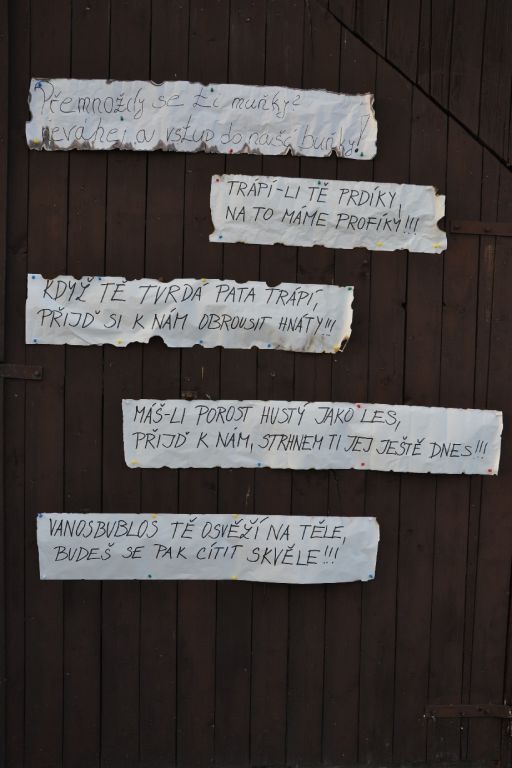 Přemnožily se ti muňky?
neváhej a vstup do naší buňky!
TRÁPÍ-LI TĚ PRDÍKY,
NA TO MÁME PROFÍKY!!!
KDYŽ TĚ TVRDÁ PATA TRÁPÍ,
PŘIJĎ SI K NÁM OBROUSIT HNÁTY!!!
MÁŠ-LI POROST HUSTÝ JAKO LES,
PŘIJĎ K NÁM, STRHNEM TI JEJ JEŠTĚ DNES!!!
VANOSBUBLOS TĚ OSVĚŽÍ NA TĚLE,
BUDEŠ SE PAK CÍTIT SKVĚLE!!!